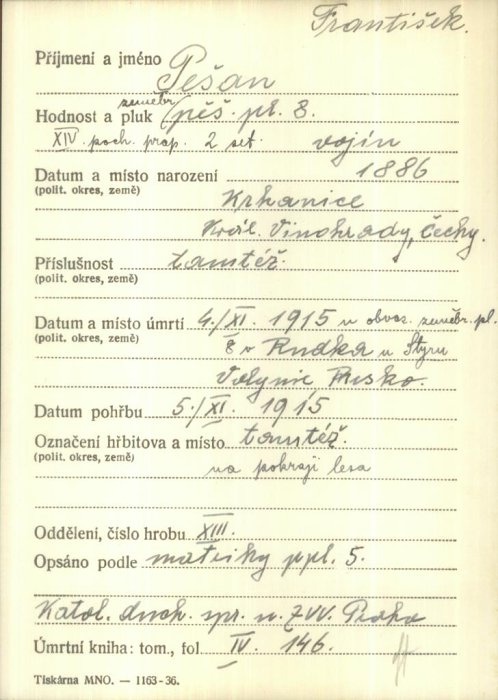 František.
Příjmení a jméno Pěšan
zeměbr.
Hodnost a pluk (pěš. pl. 8.
XIV poch. prap. 2 set. vojín
Datum a místo narození 1886
(polit. okres, země) Krhanice
Král. Vinohrady, Čechy.
Příslušnost tamtéž.
(polit. okres, země)
Datum a místo úmrtí 4./XI. 1915 u obvaz. zeměbr. pl.
(polit. okres, země) 8 v Rudka u Styru
Volynie, Rusko.
Datum pohřbu 5./XI. 1915
Označení hřbitova a místo tamtéž.
(polit. okres, země)
na pokraji lesa
Oddělení, číslo hrobu XIII.
Opsáno podle matriky ppl. 5.
Katol. duch. spr. u ZVV. Praha
Úmrtní kniha: tom., fol IV. 146.
Tiskárna MNO. — 1163-36.